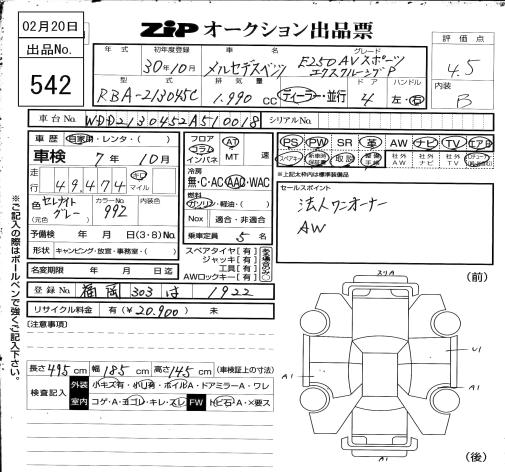 02月20日
ZIP オークション出品票
出品No.
542
年式 初年度登録 車名 グレード
30年10月 メルセデスベンツ E250 AVスポーツ
エクスクルーシブP
型式 排気量 ドア ハンドル
RBA-213045C 1,990 cc ディーラー・並行 4 左・右
評価点
4.5
内装
B
車台No. WDD2130452A510018 シリアルNo.
車歴 自家用・レンタ・( )
車検 7年 10月
走行 49,474 キロ マイル
色 セレナイトグレー カラーNo. 992 内装色
(元色)
予備検 年 月 日(3・8)No.
形状 キャンピング・放宣・事務室・( )
名変期限 年 月 日迄
フロア コラム インパネ AT MT 速
冷房 無・C・AC・AAC・WAC
燃料 ガソリン・軽油・( )
Nox 適合・非適合
乗車定員 5名
スペアタイヤ[有]
ジャッキ[有]
工具[有]
AWロックキー[有]
PS PW SR 革 AW ナビ TV エアB
スペアキー 新車時保証書 取説 整備手帳 社外AW 社外ナビ 社外TV
※上記太枠内は標準装備品
セールスポイント
法人ワンオーナー
AW
登録No. 福岡 303 は 1922
リサイクル料金 有(¥20,900) 未
[注意事項]
※ご記入の際はボールペンで強くご記入下さい。
長さ 495cm 幅 185cm 高さ 145cm (車検証上の寸法)
検査記入 外装 小キズ有・小凹有・ホイルA・ドアミラーA・ワレ
室内 コゲ・A・ヨゴレ・キレ・スレ FW トビ石・A・×要ス
(前)
スリA
U1
A1
A1
A1
(後)